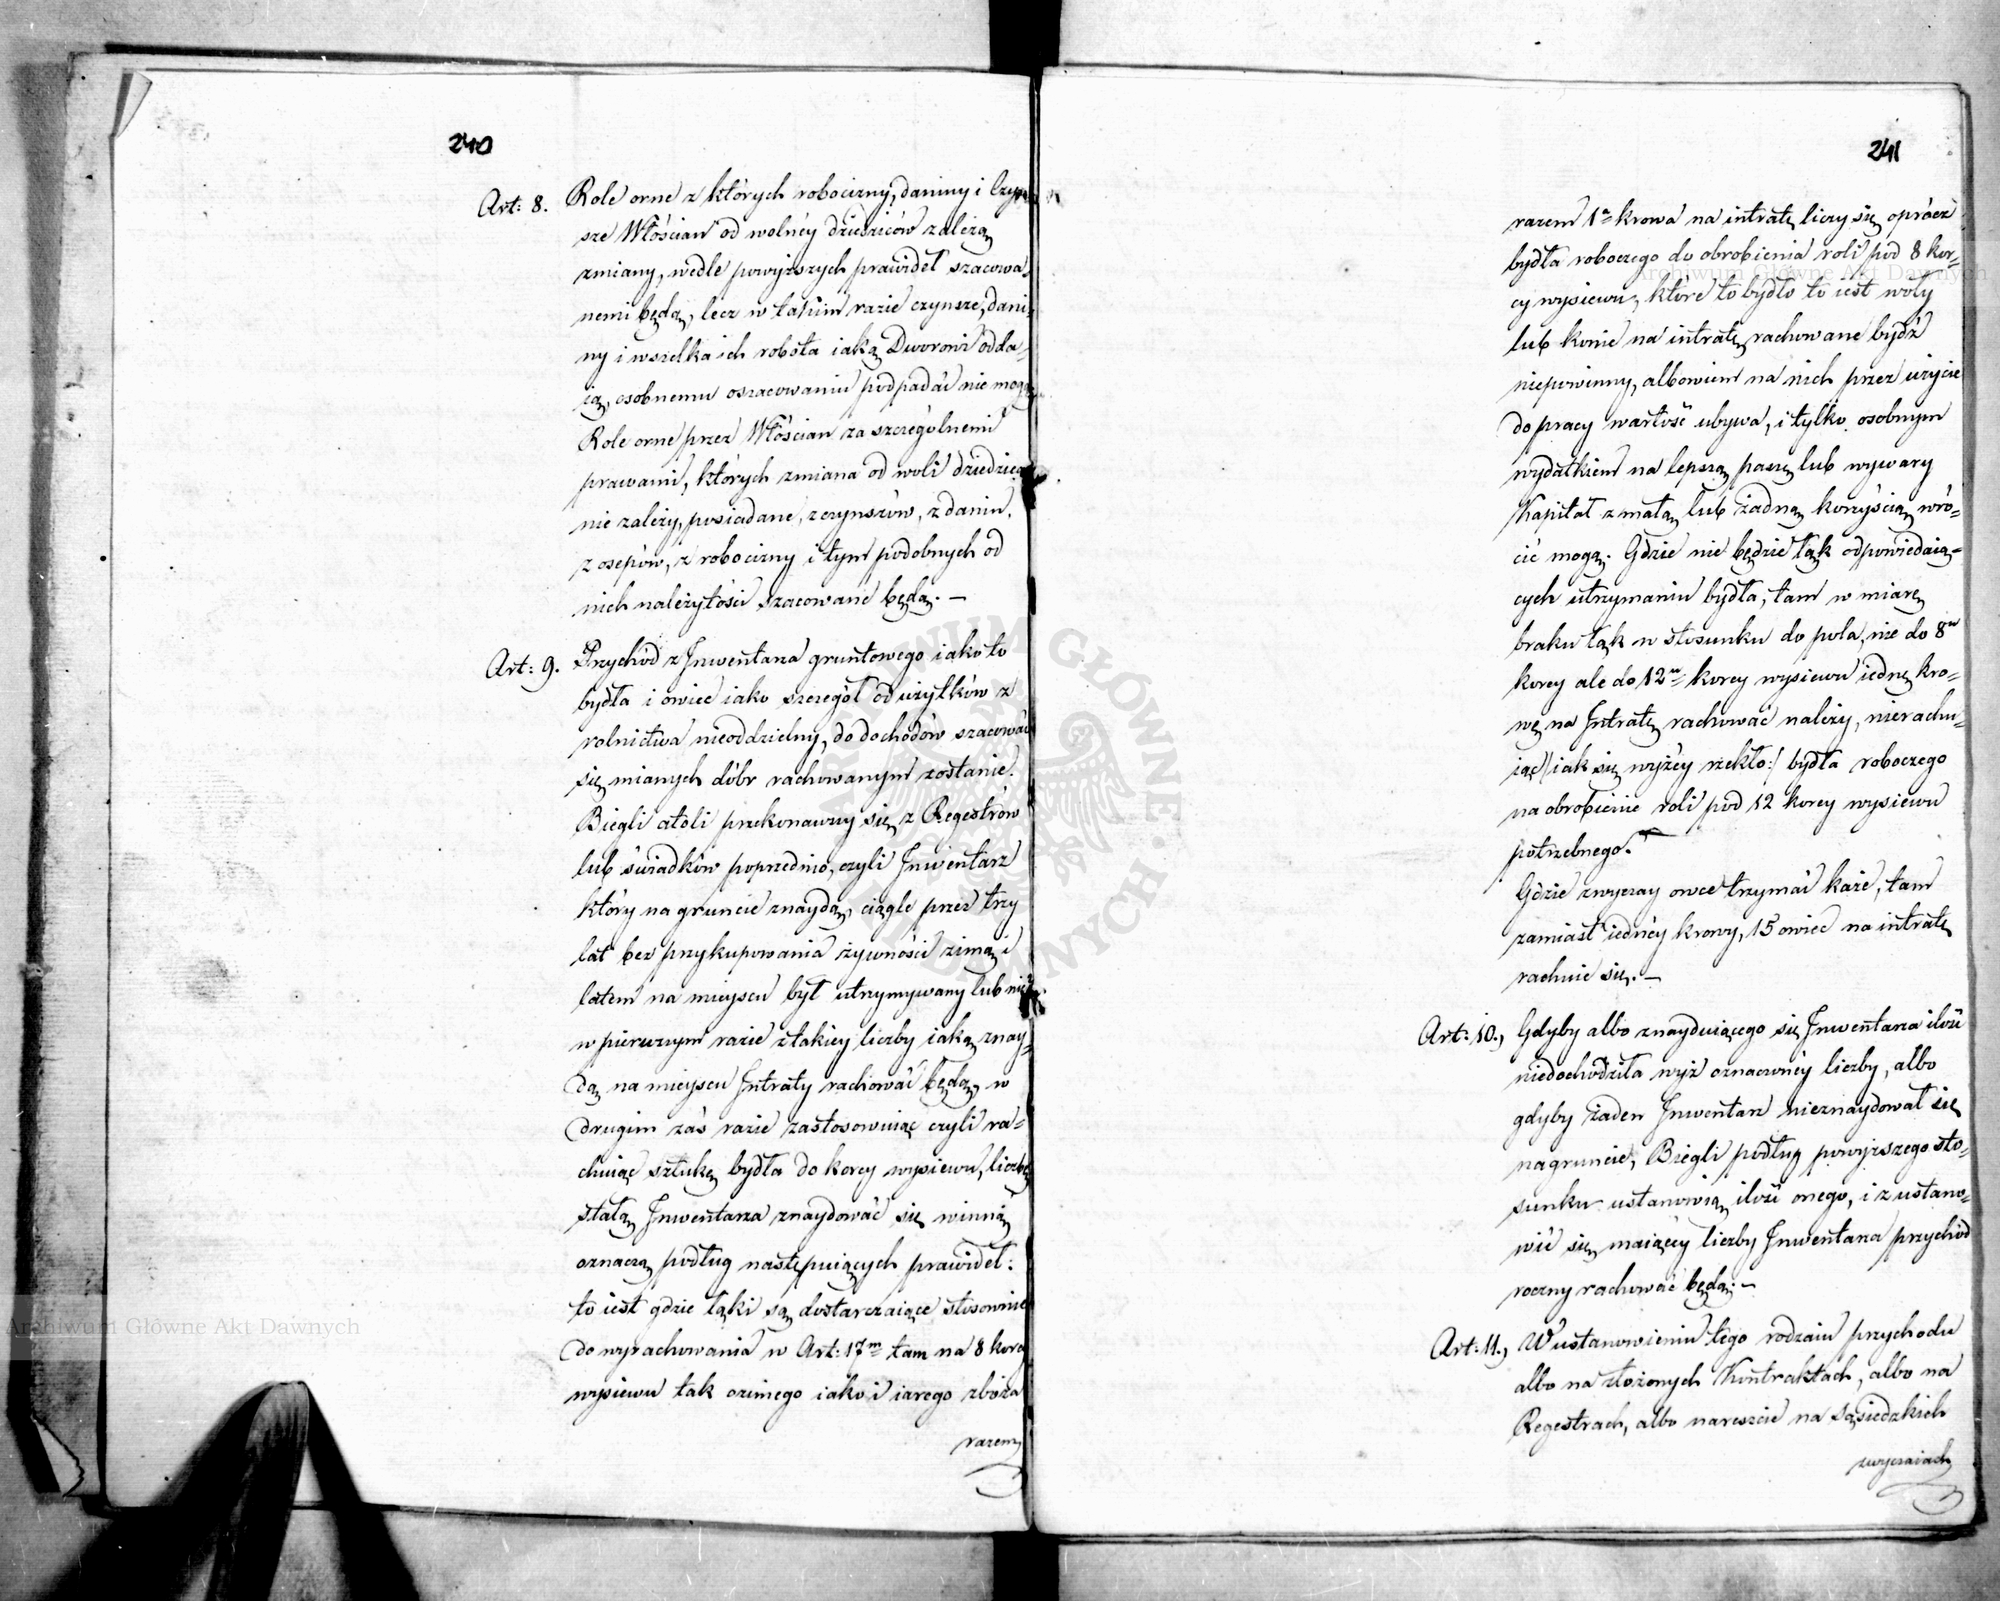 240
Art: 8. Role orne z których robocizny, daniny i Czyn
sze Włościan od wolnéy dziedziców zależą
zmiany, wedle powyższych prawideł szacowa
nemi będą, lecz w takim razie czynsze, dani-
ny i wszelka ich robota iaką Dworowi odda-
ią, osobnemu oszacowaniu podpadać nie mogą
Role orne przez Włościan za szczególnemi
prawami, których zmiana od woli dziedzica
nie zależy, posiadane, z czynszów, z danin,
z osepów, z robocizny i tym podobnych od
nich należytości szacowane będą. —
Art: 9. Przychód z Inwentarza gruntowego iako to
bydła i owiec iako szczegół od użytków z
rolnictwa nieoddzielny, do dochodów szacować
się mianych dóbr rachowanym zostanie.
Biegli atoli przekonawszy się z Regestrów
lub świadków poprzednio, czyli Inwentarz
który na gruncie znaydą, ciągle przez trzy
lat bez przykupowania żywności zimą i
latem na mieyscu był utrzymywany lub nie
w pierwszym razie z takiey liczby iaką znay-
dą na mieyscu Intraty rachować będą, w
drugim zaś razie zastosowuiąc czyli ra-
chuiąc sztukę bydła do korcy wysiewu, liczbę
stałą Inwentarza znaydować się winną
oznaczą podług następuiących prawideł:
to iest gdzie łąki są dostarczaiące stosownie
do wyrachowania w Art: 17m tam na 8 korcy
wysiewu tak ozimego iako i iarego zboża
razem
241
razem 1a krowa na intratę liczy się oprócz
bydła roboczego do obrobienia roli pod 8 kor-
cy wysiewu, które to bydło to iest woły
lub konie na intratę rachowane bydź
niepowinny, albowiem na nich przez użycie
do pracy wartość ubywa, i tylko osobnym
wydatkiem na lepszą paszę lub wywary
Kapitał z małą lub żadną korzyścią wró-
cić mogą. Gdzie nie będzie łąk odpowiedaią-
cych utrzymaniu bydła, tam w miarę
braku łąk w stosunku do pola, nie do 8u
korcy ale do 12u korcy wysiewu iednę kro-
wę na Intratę rachować należy, nierachu-
iąc /:iak się wyżéy rzekło:/ bydła roboczego
na obrobienie roli pod 12 korcy wysiewu
potrzebnego.
Gdzie zwyczay owce trzymać każe, tam
zamiast iednéy krowy, 15 owiec na intratę
rachuie się. —
Art: 10., Gdyby albo znayduiącego się Inwentarza ilość
niedochodziła wyż oznaczonéy liczby, albo
gdyby żaden Inwentarz nieznaydował się
na gruncie, Biegli podług powyższego sto-
sunku ustanowią ilość onego, i z ustano-
wić się maiącéy liczby Inwentarza przychód
roczny rachować będą. —
Art: 11., W ustanowieniu tego rodzaiu przychodu
albo na złożonych Kontraktach, albo na
Regestrach, albo nareszcie na Sąsiedzkich
zwyczaiach
Archiwum Główne Akt Dawnych
Archiwum Główne Akt Dawnych
ARCHIWUM GŁÓWNE AKT DAWNYCH